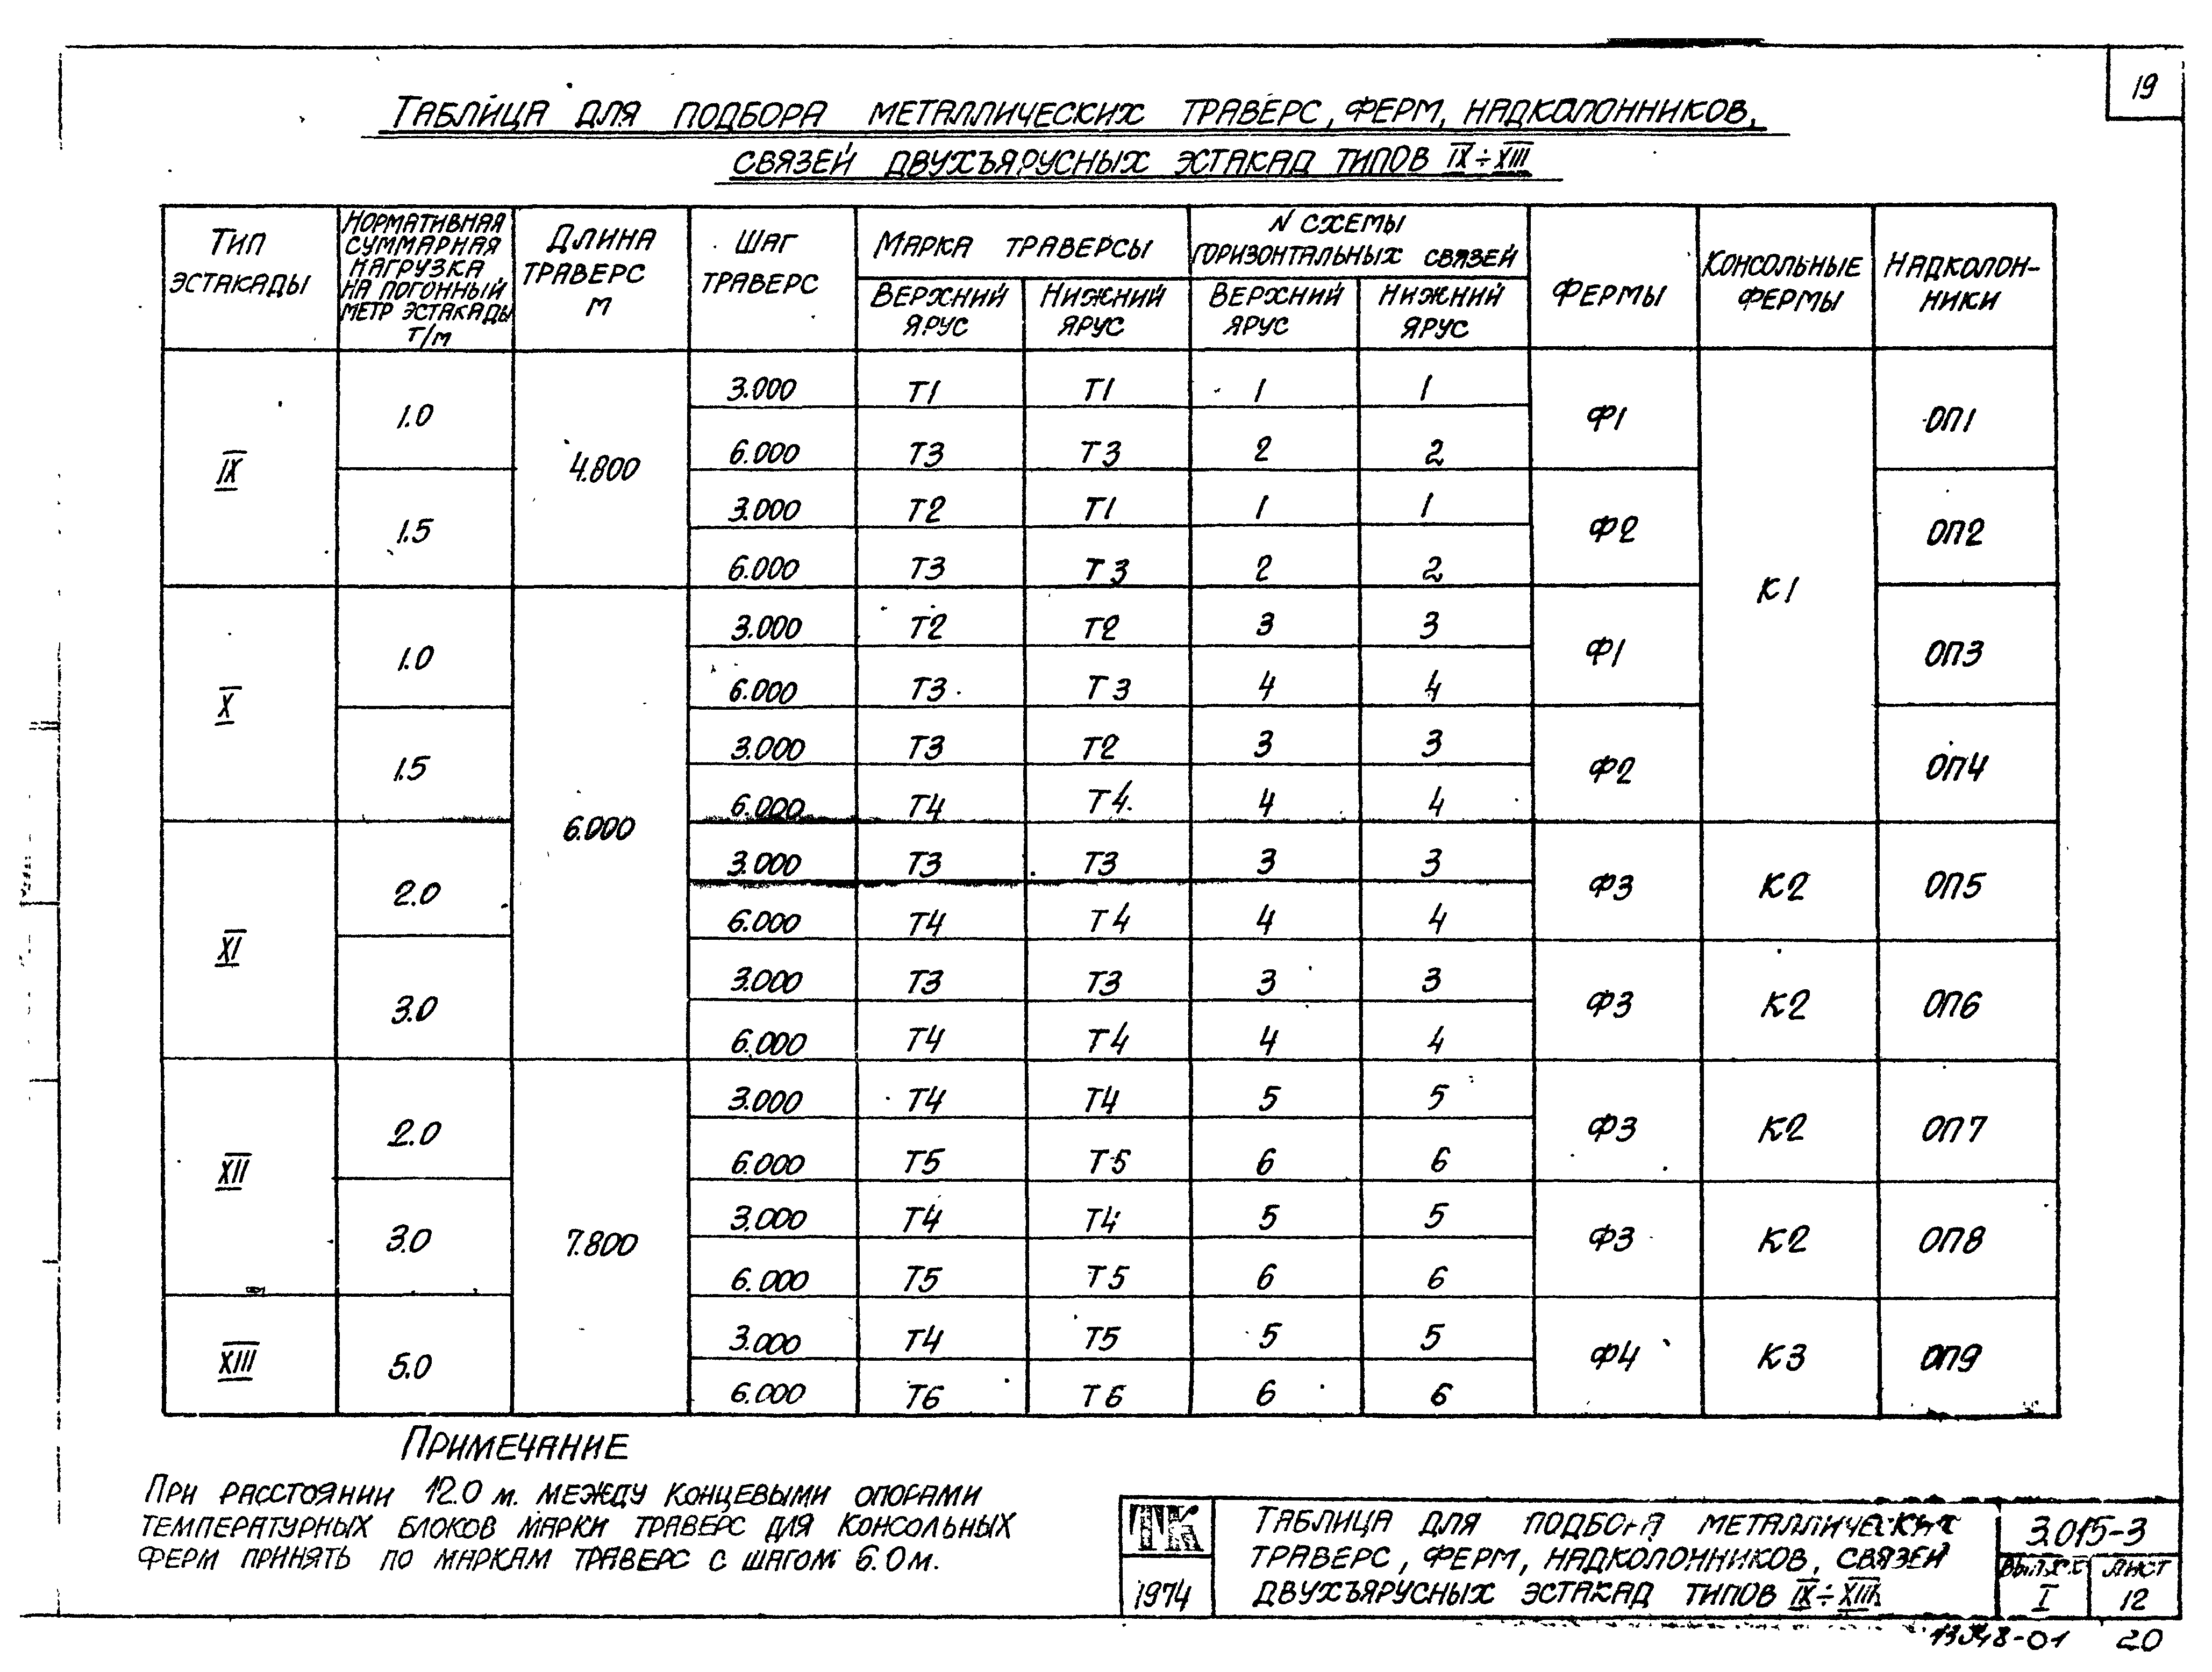 19
ТАБЛИЦА ДЛЯ ПОДБОРА МЕТАЛЛИЧЕСКИХ ТРАВЕРС, ФЕРМ, НАДКОЛОННИКОВ,
СВЯЗЕЙ ДВУХЪЯРУСНЫХ ЭСТАКАД ТИПОВ IX÷XIII
ТИП ЭСТАКАДЫ
НОРМАТИВНАЯ СУММАРНАЯ НАГРУЗКА НА ПОГОННЫЙ МЕТР ЭСТАКАДЫ Т/М
ДЛИНА ТРАВЕРС М
ШАГ ТРАВЕРС
МАРКА ТРАВЕРСЫ
N СХЕМЫ ГОРИЗОНТАЛЬНЫХ СВЯЗЕЙ
ФЕРМЫ
КОНСОЛЬНЫЕ ФЕРМЫ
НАДКОЛОН-НИКИ
ВЕРХНИЙ ЯРУС НИЖНИЙ ЯРУС ВЕРХНИЙ ЯРУС НИЖНИЙ ЯРУС
IX 1.0 4.800 3.000 Т1 Т1 1 1 Ф1 К1 ОП1
6.000 Т3 Т3 2 2
1.5 3.000 Т2 Т1 1 1 Ф2 ОП2
6.000 Т3 Т3 2 2
X 1.0 6.000 3.000 Т2 Т2 3 3 Ф1 ОП3
6.000 Т3 Т3 4 4
1.5 3.000 Т3 Т2 3 3 Ф2 ОП4
6.000 Т4 Т4 4 4
XI 2.0 3.000 Т3 Т3 3 3 Ф3 К2 ОП5
6.000 Т4 Т4 4 4
3.0 3.000 Т3 Т3 3 3 Ф3 К2 ОП6
6.000 Т4 Т4 4 4
XII 2.0 7.800 3.000 Т4 Т4 5 5 Ф3 К2 ОП7
6.000 Т5 Т5 6 6
3.0 3.000 Т4 Т4 5 5 Ф3 К2 ОП8
6.000 Т5 Т5 6 6
XIII 5.0 3.000 Т4 Т5 5 5 Ф4 К3 ОП9
6.000 Т6 Т6 6 6
ПРИМЕЧАНИЕ
ПРИ РАССТОЯНИИ 12.0 М. МЕЖДУ КОНЦЕВЫМИ ОПОРАМИ
ТЕМПЕРАТУРНЫХ БЛОКОВ МАРКИ ТРАВЕРС ДЛЯ КОНСОЛЬНЫХ
ФЕРМ ПРИНЯТЬ ПО МАРКАМ ТРАВЕРС С ШАГОМ 6.0 М.
ТК
1974
ТАБЛИЦА ДЛЯ ПОДБОРА МЕТАЛЛИЧЕСКИХ
ТРАВЕРС, ФЕРМ, НАДКОЛОННИКОВ, СВЯЗЕЙ
ДВУХЪЯРУСНЫХ ЭСТАКАД ТИПОВ IX÷XIII
3.015-3
ЛИСТ
I 12
20